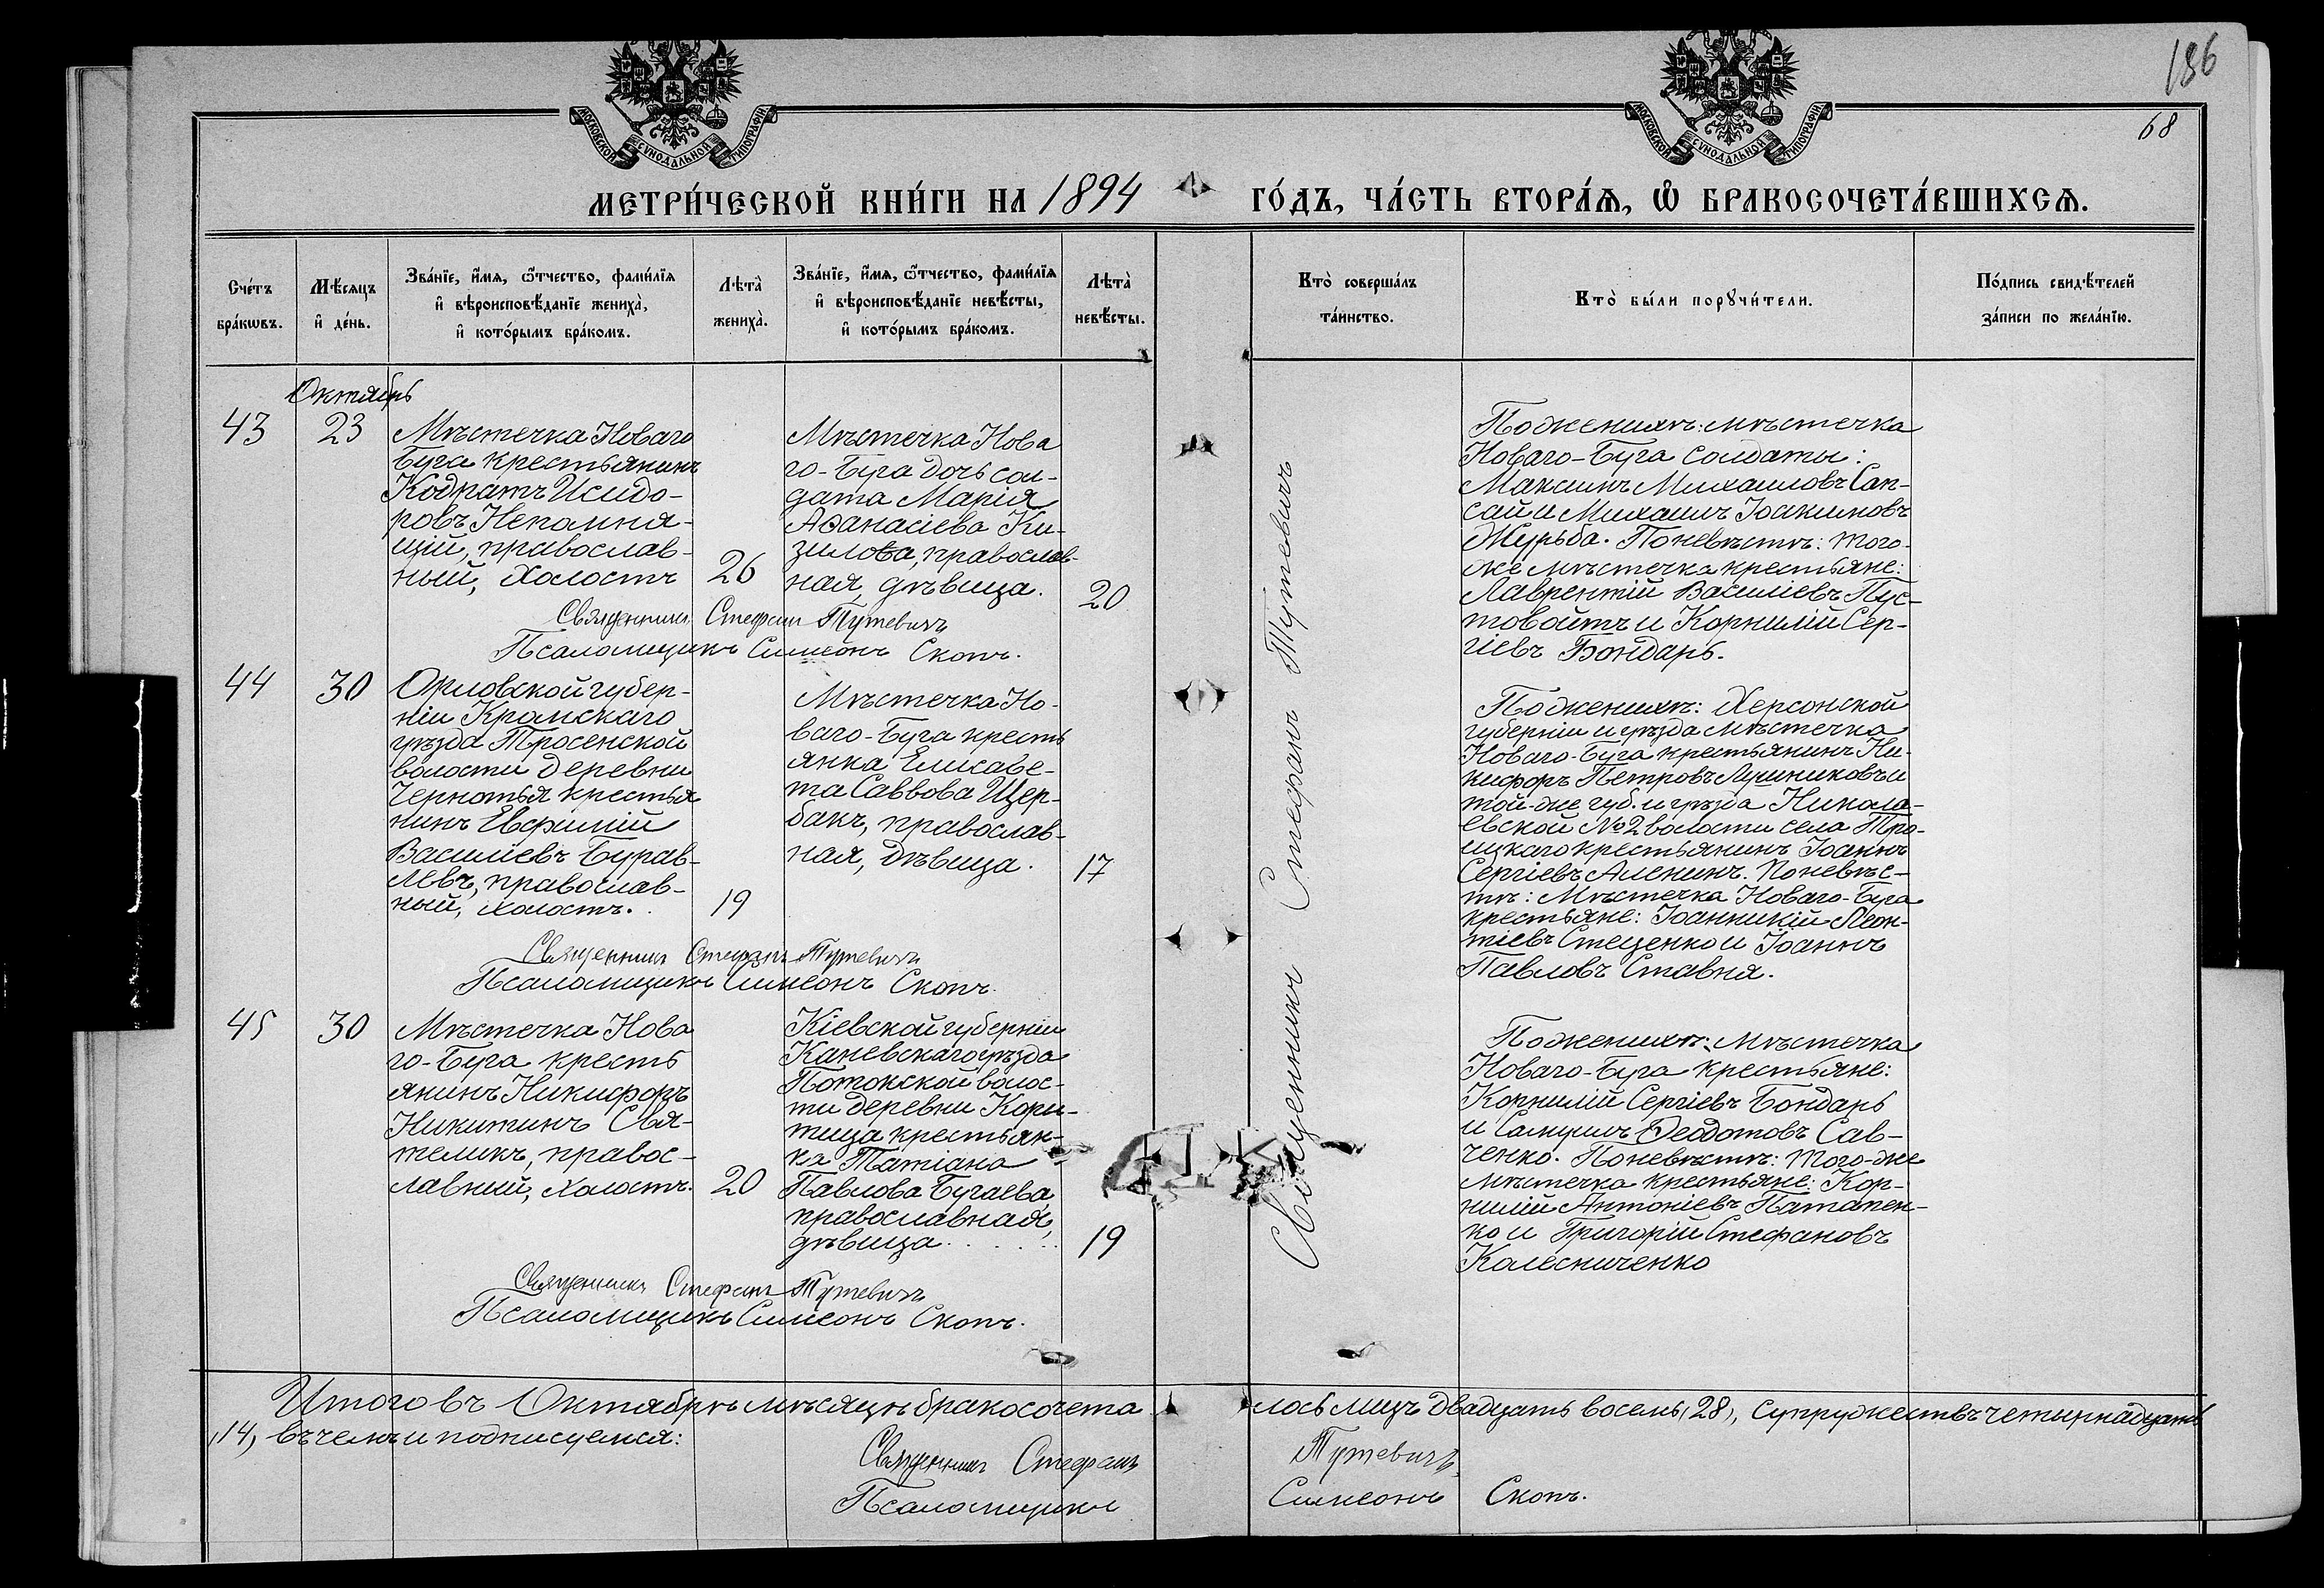 186
68
МОСКОВСКОЙ СѴНОДАЛЬНОЙ ТИПОГРАФІИ
МОСКОВСКОЙ СѴНОДАЛЬНОЙ ТИПОГРАФІИ
МЕТРИ́ЧЕСКОЙ КНИ́ГИ НА 1894 ГО́ДЪ, ЧА́СТЬ ВТОРА́Ѧ, Ѽ БРАКОСОЧЕТА́ВШИХСѦ.
Сче́тъ
бра́кѡвъ.
Мѣ́сяцъ
и҆ де́нь.
Зва́нїе, и҆́мѧ, ѻ҆́тчество, фами́лїѧ
и҆ вѣроисповѣ́данїе жениха̀,
и҆ кото́рымъ бра́комъ.
Лѣта̀
жениха̀.
Зва́нїе, и҆́мѧ, ѻ҆́тчество, фами́лїѧ
и҆ вѣроисповѣ́данїе невѣ́сты,
и҆ кото́рымъ бра́комъ.
Лѣта̀
невѣ́сты.
Кто̀ соверша́лъ
та́инство.
Кто̀ бы́ли порꙋчи́тели.
По́дпись свидѣ́телей
за́писи по жела́нїю.
Октябрь
43
23
Мѣстечка Новаго
Буга крестьянинъ
Кодратъ Исидо-
ровъ Непомня-
щій, православ-
ный, холостъ
26
Мѣстечка Нова
го-Буга дочь сол-
дата Марія
Аѳанасіева Ки-
зилова, православ-
ная, дѣвица.
20
Священникъ Стефанъ Тутевичъ
Псаломщикъ Симеонъ Скопъ.
Поженихѣ: мѣстечка
Новаго-Буга солдаты:
Максимъ Михаиловъ Сап-
сай и Михаилъ Іоакимовъ
Журьба. Поневѣстѣ: того-
же мѣстечка крестьяне:
Лаврентій Василіевъ Пус-
товойтъ и Корнилій Сер-
гіевъ Бондарь.
44
30
Орловской губер-
ніи Кромскаго
уѣзда Тросенской
волости деревни
Чернотья крестья
нинъ Евфимій
Василіевъ Бурав-
левъ, православ-
ный, холостъ.
19
Мѣстечка Но-
ваго-Буга кресть
янка Елисаве-
та Саввова Щер-
бакъ, православ-
ная, дѣвица.
17
Священникъ Стефанъ Тутевичъ
Псаломщикъ Симеонъ Скопъ.
Поженихѣ: Херсонской
губерніи и уѣзда мѣстечка
Новаго-Буга крестьянинъ Ни-
кифоръ Петровъ Лушниковъ и
той-же губ. и уѣзда Никола-
евской №2 волости села Тро-
ицкаго крестьянинъ Іоаннъ
Сергіевъ Аленинъ. Поневѣс-
тѣ: Мѣстечка Новаго-Буга
крестьяне: Іоанникій Леон-
тіевъ Стеценко и Іоаннъ
Павловъ Ставня.
45
30
Мѣстечка Нова
го-Буга кресть
янинъ Никифоръ
Никитинъ Свя-
теликъ, правос-
лавный, холостъ.
20
Кіевской губерніи
Каневскаго уѣзда
Потокской волос-
ти деревни Кори-
тища крестьян-
ка Татіана
Павлова Бугаева,
православная,
дѣвица
19
Священникъ Стефанъ Тутевичъ
Псаломщикъ Симеонъ Скопъ.
Священникъ Стефанъ Тутевичъ
Поженихѣ: мѣстечка
Новаго-Буга крестьяне:
Корнилій Сергіевъ Бондарь
и Самуилъ Ѳеодотовъ Сав-
ченко. Поневѣстѣ: того-же
мѣстечка крестьяне: Кор-
нилій Антоніевъ Патапен-
ко и Григорій Стефановъ
Калесниченко
Итого въ Октябрѣ мѣсяцѣ бракосочета лось лицъ двадцать восемь, 28, супружествъ четырнадцать
,14, въ чемъ и подписуемся:
Священникъ Стефанъ Тутевичъ.
Псаломщикъ Симеонъ Скопъ.